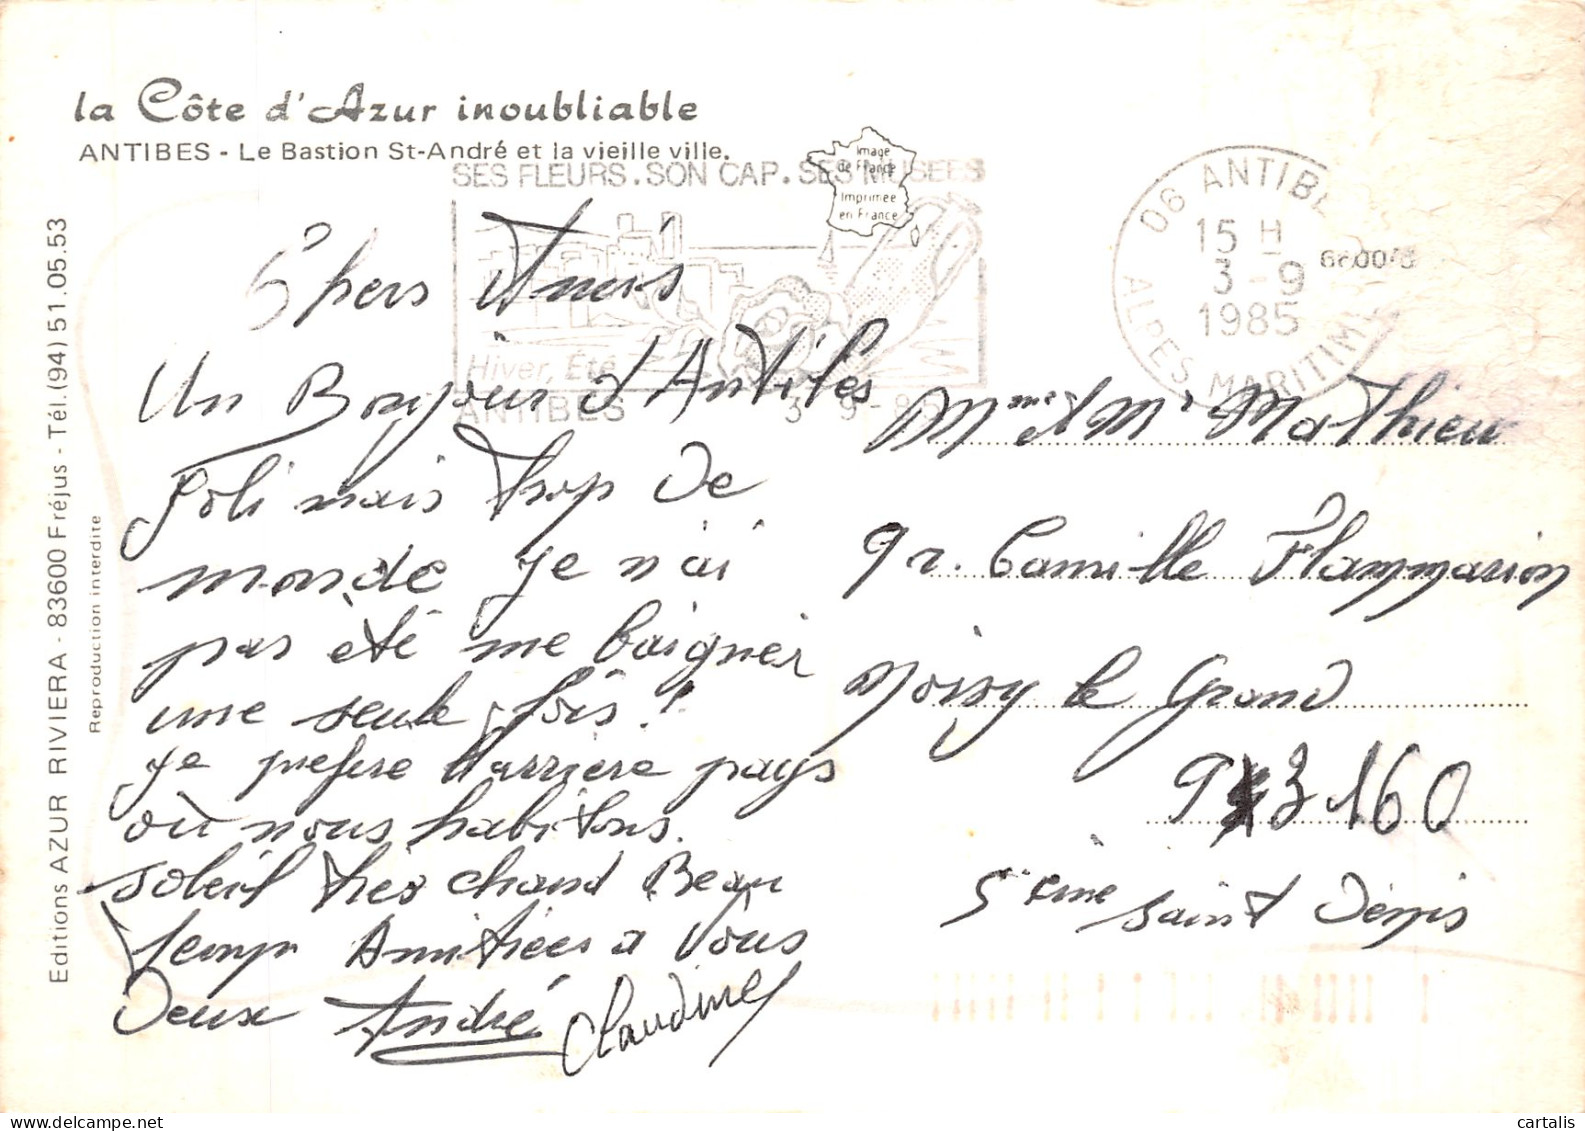 la Côte d'Azur inoubliable
ANTIBES - Le Bastion St-André et la vieille ville.
Image
de France
Imprimée
en France
SES FLEURS. SON CAP. SES MUSEES
Hiver, Été
ANTIBES 3-9-85
06 ANTIBES
15 H
3-9
1985
ALPES MARITIM
Chers Amis
Un Bonjour d'Antibes
Joli mais trop de
monde je n'ai
pas été me baigner
une seule fois!
je préfère l'arrière pays
où nous habitons.
soleil très chaud Beau
temps Amitiées a Vous
Deux André Claudine
Mme et Mr Mathieu
9 r. Camille Flammarion
Noisy le Grand
93160
Seine saint Denis
Editions AZUR RIVIERA - 83600 Fréjus - Tél. (94) 51.05.53
Reproduction interdite
www.delcampe.net
cartalis